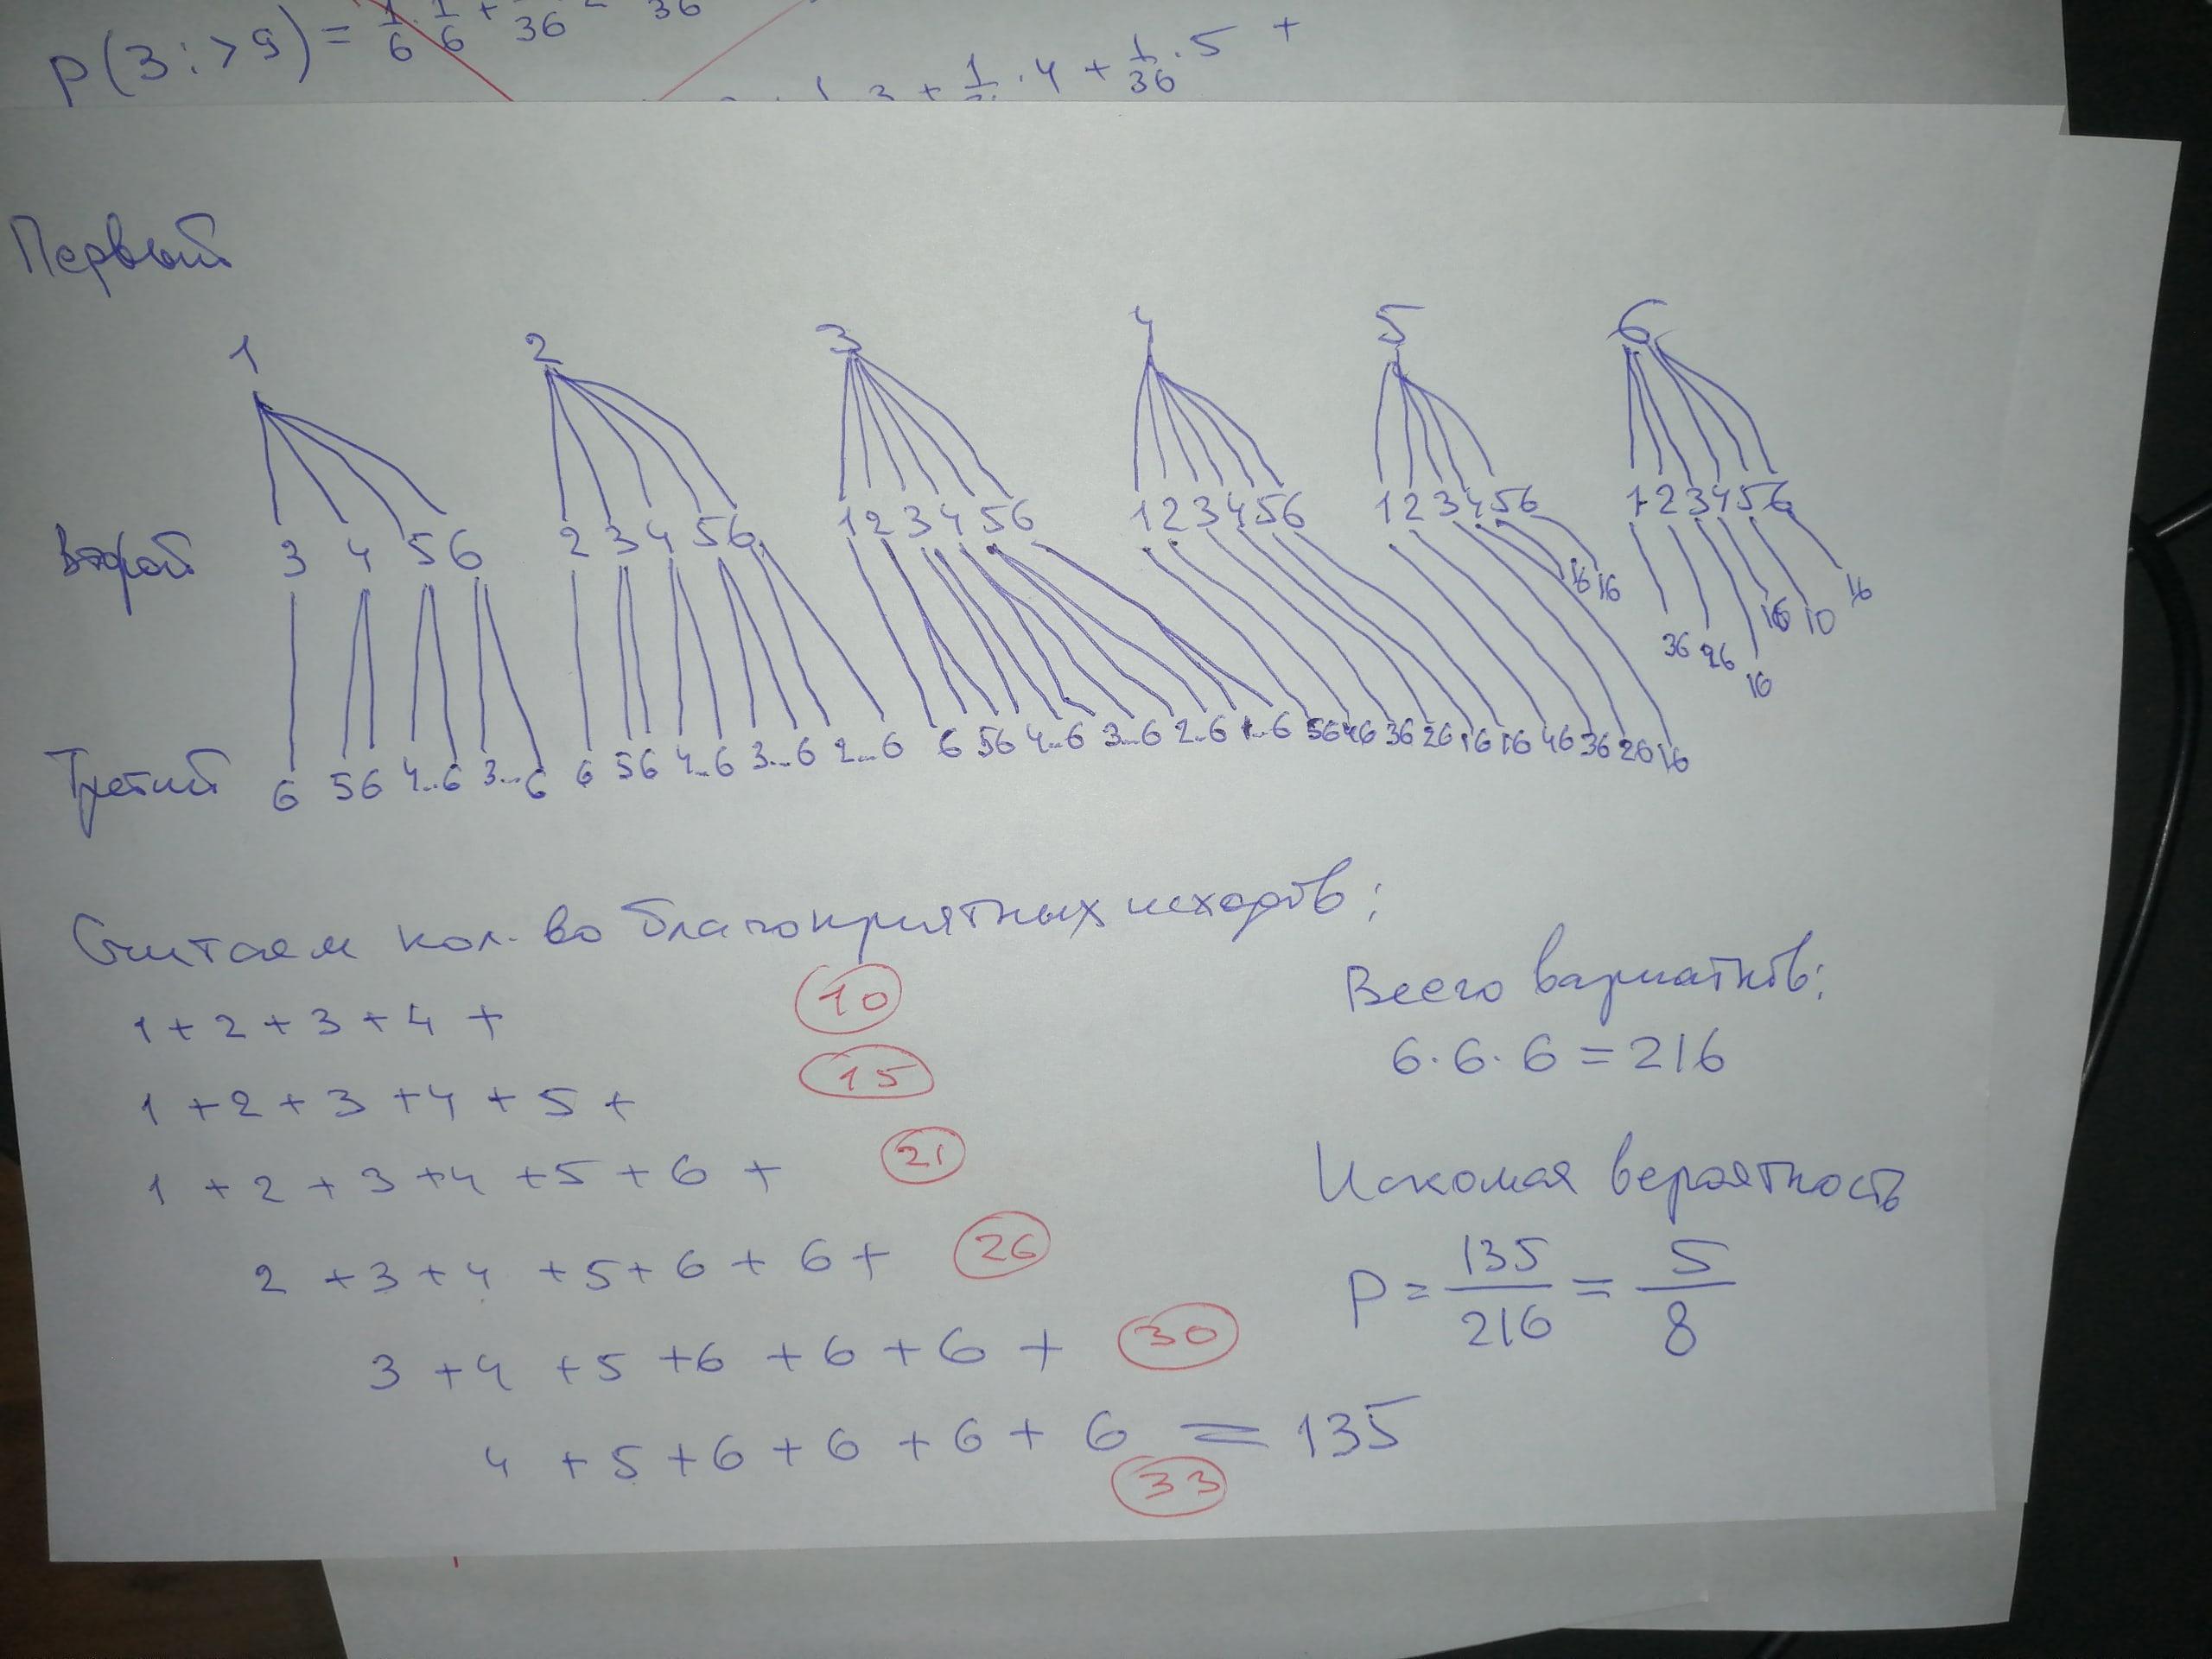 P(3:>9) = 1/6 · 1/6 + /36 = 36
1/36 · 5 +
· 3 + 1 · 4 +
Первый
1 2 3 4 5 6
Второй 3 4 5 6 2 3 4 5 6 1 2 3 4 5 6 1 2 3 4 5 6 1 2 3 4 5 6 1 2 3 4 5 6
16 16 36 26 16 16 10 16
Третий 6 56 4..6 3...6 6 56 4..6 3...6 2...6 6 56 4...6 3...6 2..6 1..6 56 46 36 26 16 16 46 36 26 16
Считаем кол-во благоприятных исходов:
1 + 2 + 3 + 4 + 10
1 + 2 + 3 + 4 + 5 + 15
1 + 2 + 3 + 4 + 5 + 6 + 21
2 + 3 + 4 + 5 + 6 + 6 + 26
3 + 4 + 5 + 6 + 6 + 6 + 30
4 + 5 + 6 + 6 + 6 + 6 = 135
33
Всего вариантов:
6 · 6 · 6 = 216
Искомая вероятность
P = 135/216 = 5/8